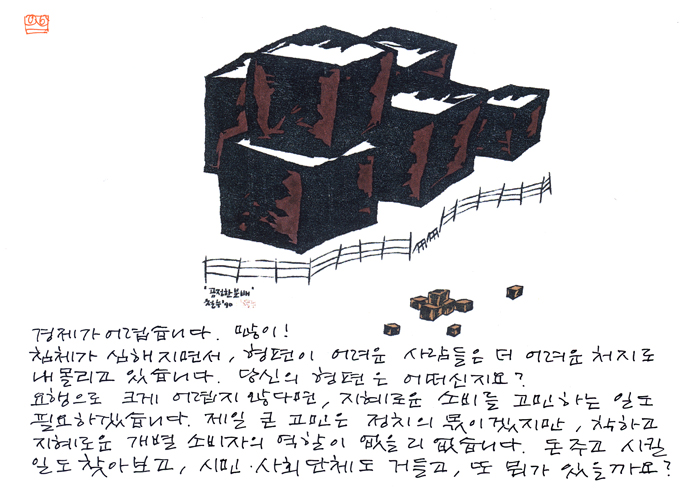 "공정한 분배"
경제가 어렵습니다. 많이!
침체가 심해지면서, 형편이 어려운 사람들은 더 어려운 처지로
내몰리고 있습니다. 당신의 형편은 어떠신지요?
요행으로 크게 어렵지 않다면, 지혜로운 소비를 고민하는 일도
필요하겠습니다. 제일 큰 고민은 정치의 몫이겠지만, 착하고
지혜로운 개별 소비자의 역할이 없을 리 없습니다. 돈 주고 시킬
일도 찾아보고, 시민·사회단체도 거들고, 또 뭐가 있을까요?